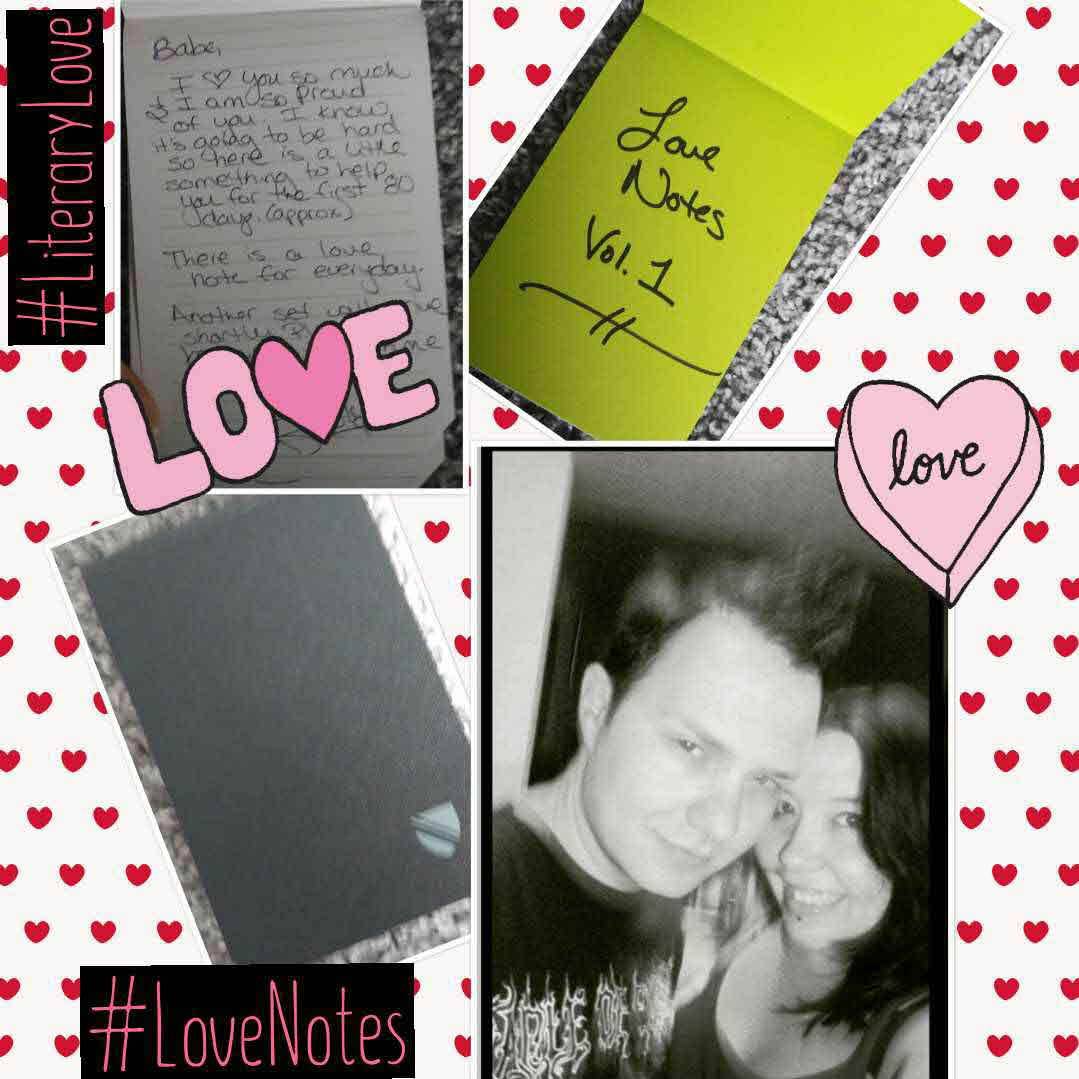 #LiteraryLove
Babe,
I ♡ you so much
& I am so proud
of you. I know
it's going to be hard
so here is a little
something to help
you for the first 30
days. (approx)
There is a love
note for everyday.
Another set
shortly
me
Love
Notes
Vol. 1
LOVE
love
#LoveNotes